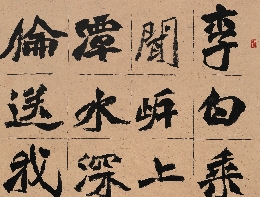 李白乘
聞岸上
潭水深
倫送我